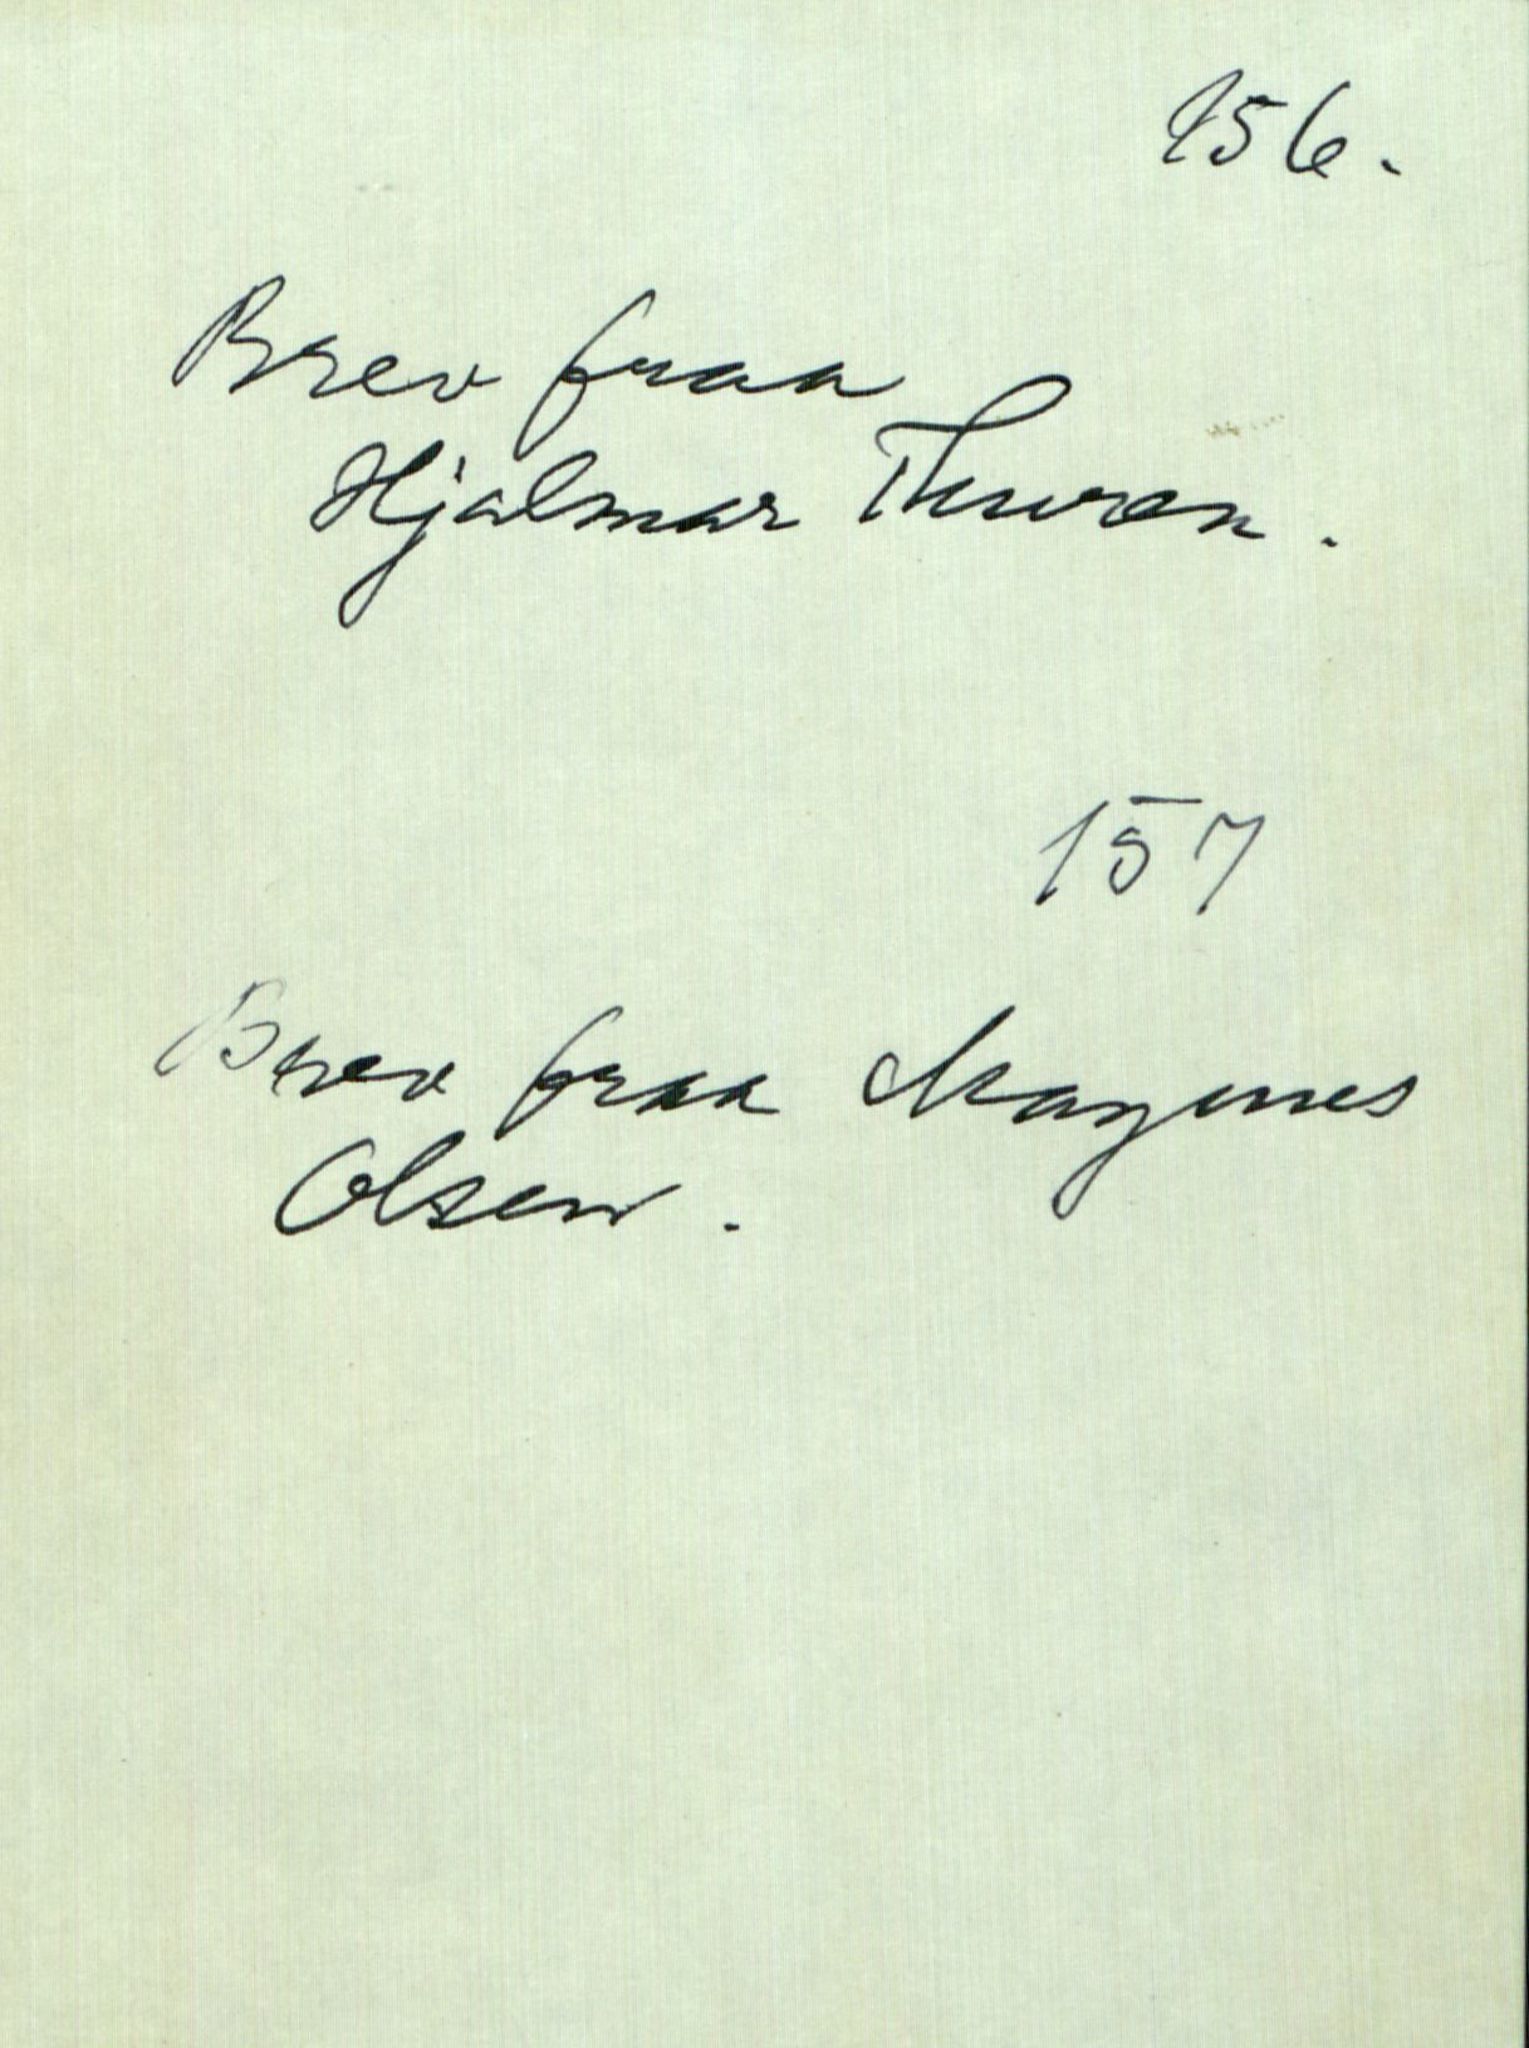 156.
Brev fraa
Hjalmar Thuren.
157
Brev fraa Magnus
Olsen.